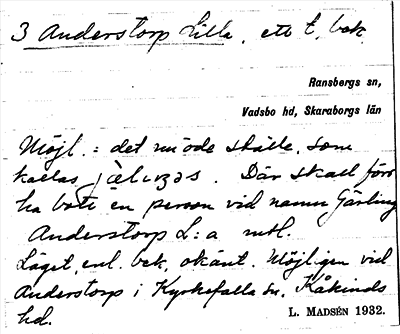 3 Anderstorp Lilla, ett t, bek.
Ransbergs sn,
Vadsbo hd, Skaraborgs län
Möjl. : det nu öde ställe, som
kallas . Där skall förr
ha bott en person vid namn Gärling
Anderstorp L:a mtl.
Läget, enl. bek, okänt. Möjligen vid
Anderstorp i Kyrkefalla sn, Kåkinds
hd.
L. MADSÉN 1932.